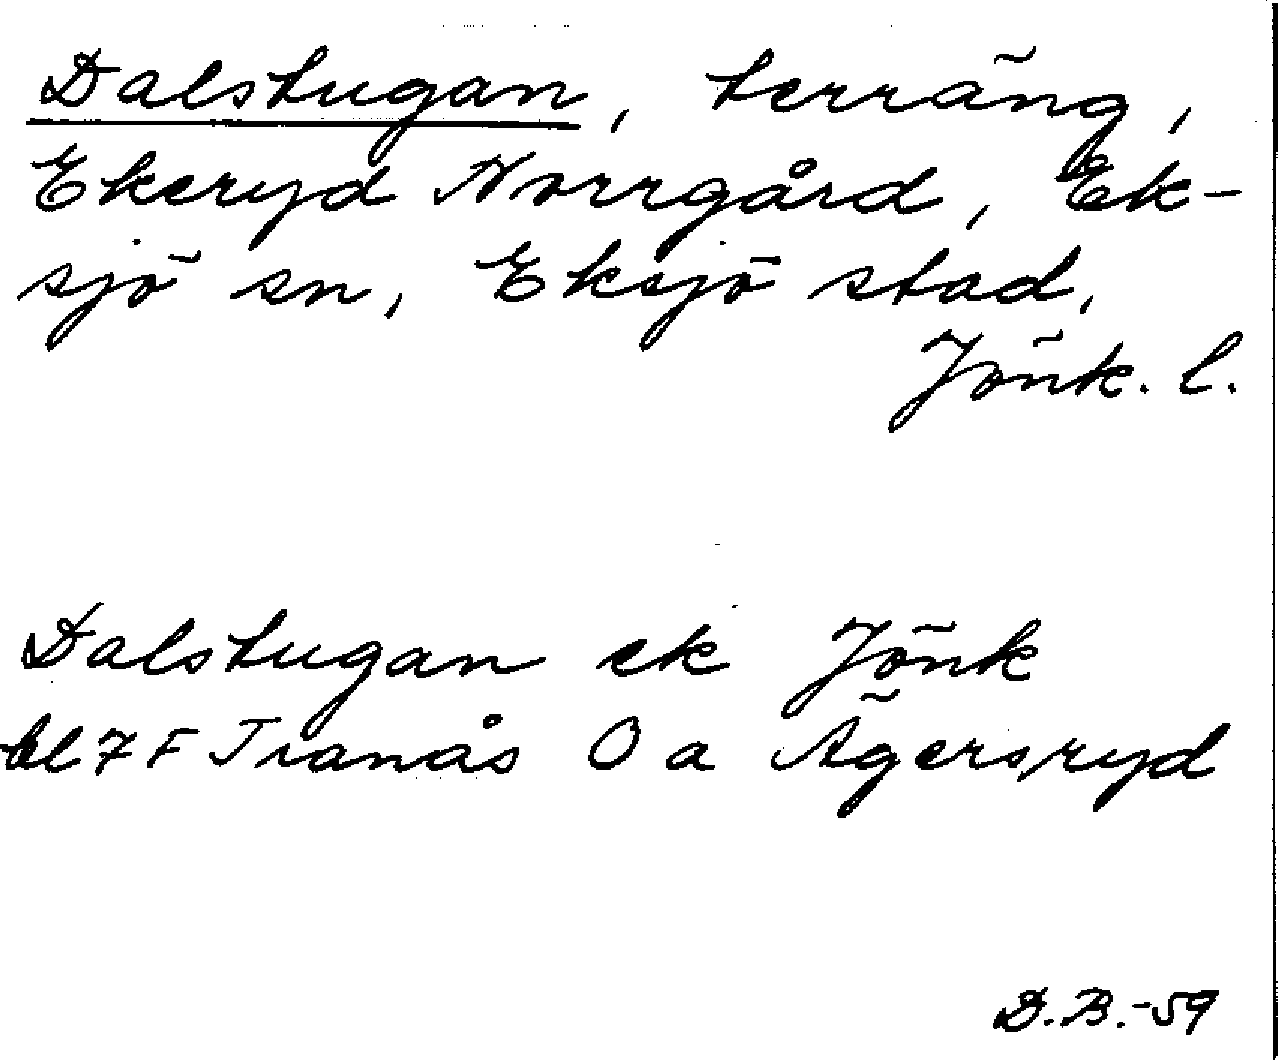 Dalstugan, terräng,
Ekeryd Norrgård, Ek-
sjö sn, Eksjö stad,
Jönk. l.
Dalstugan ek Jönk
bl 7 F Tranås O a Ägersryd
D.B.-59